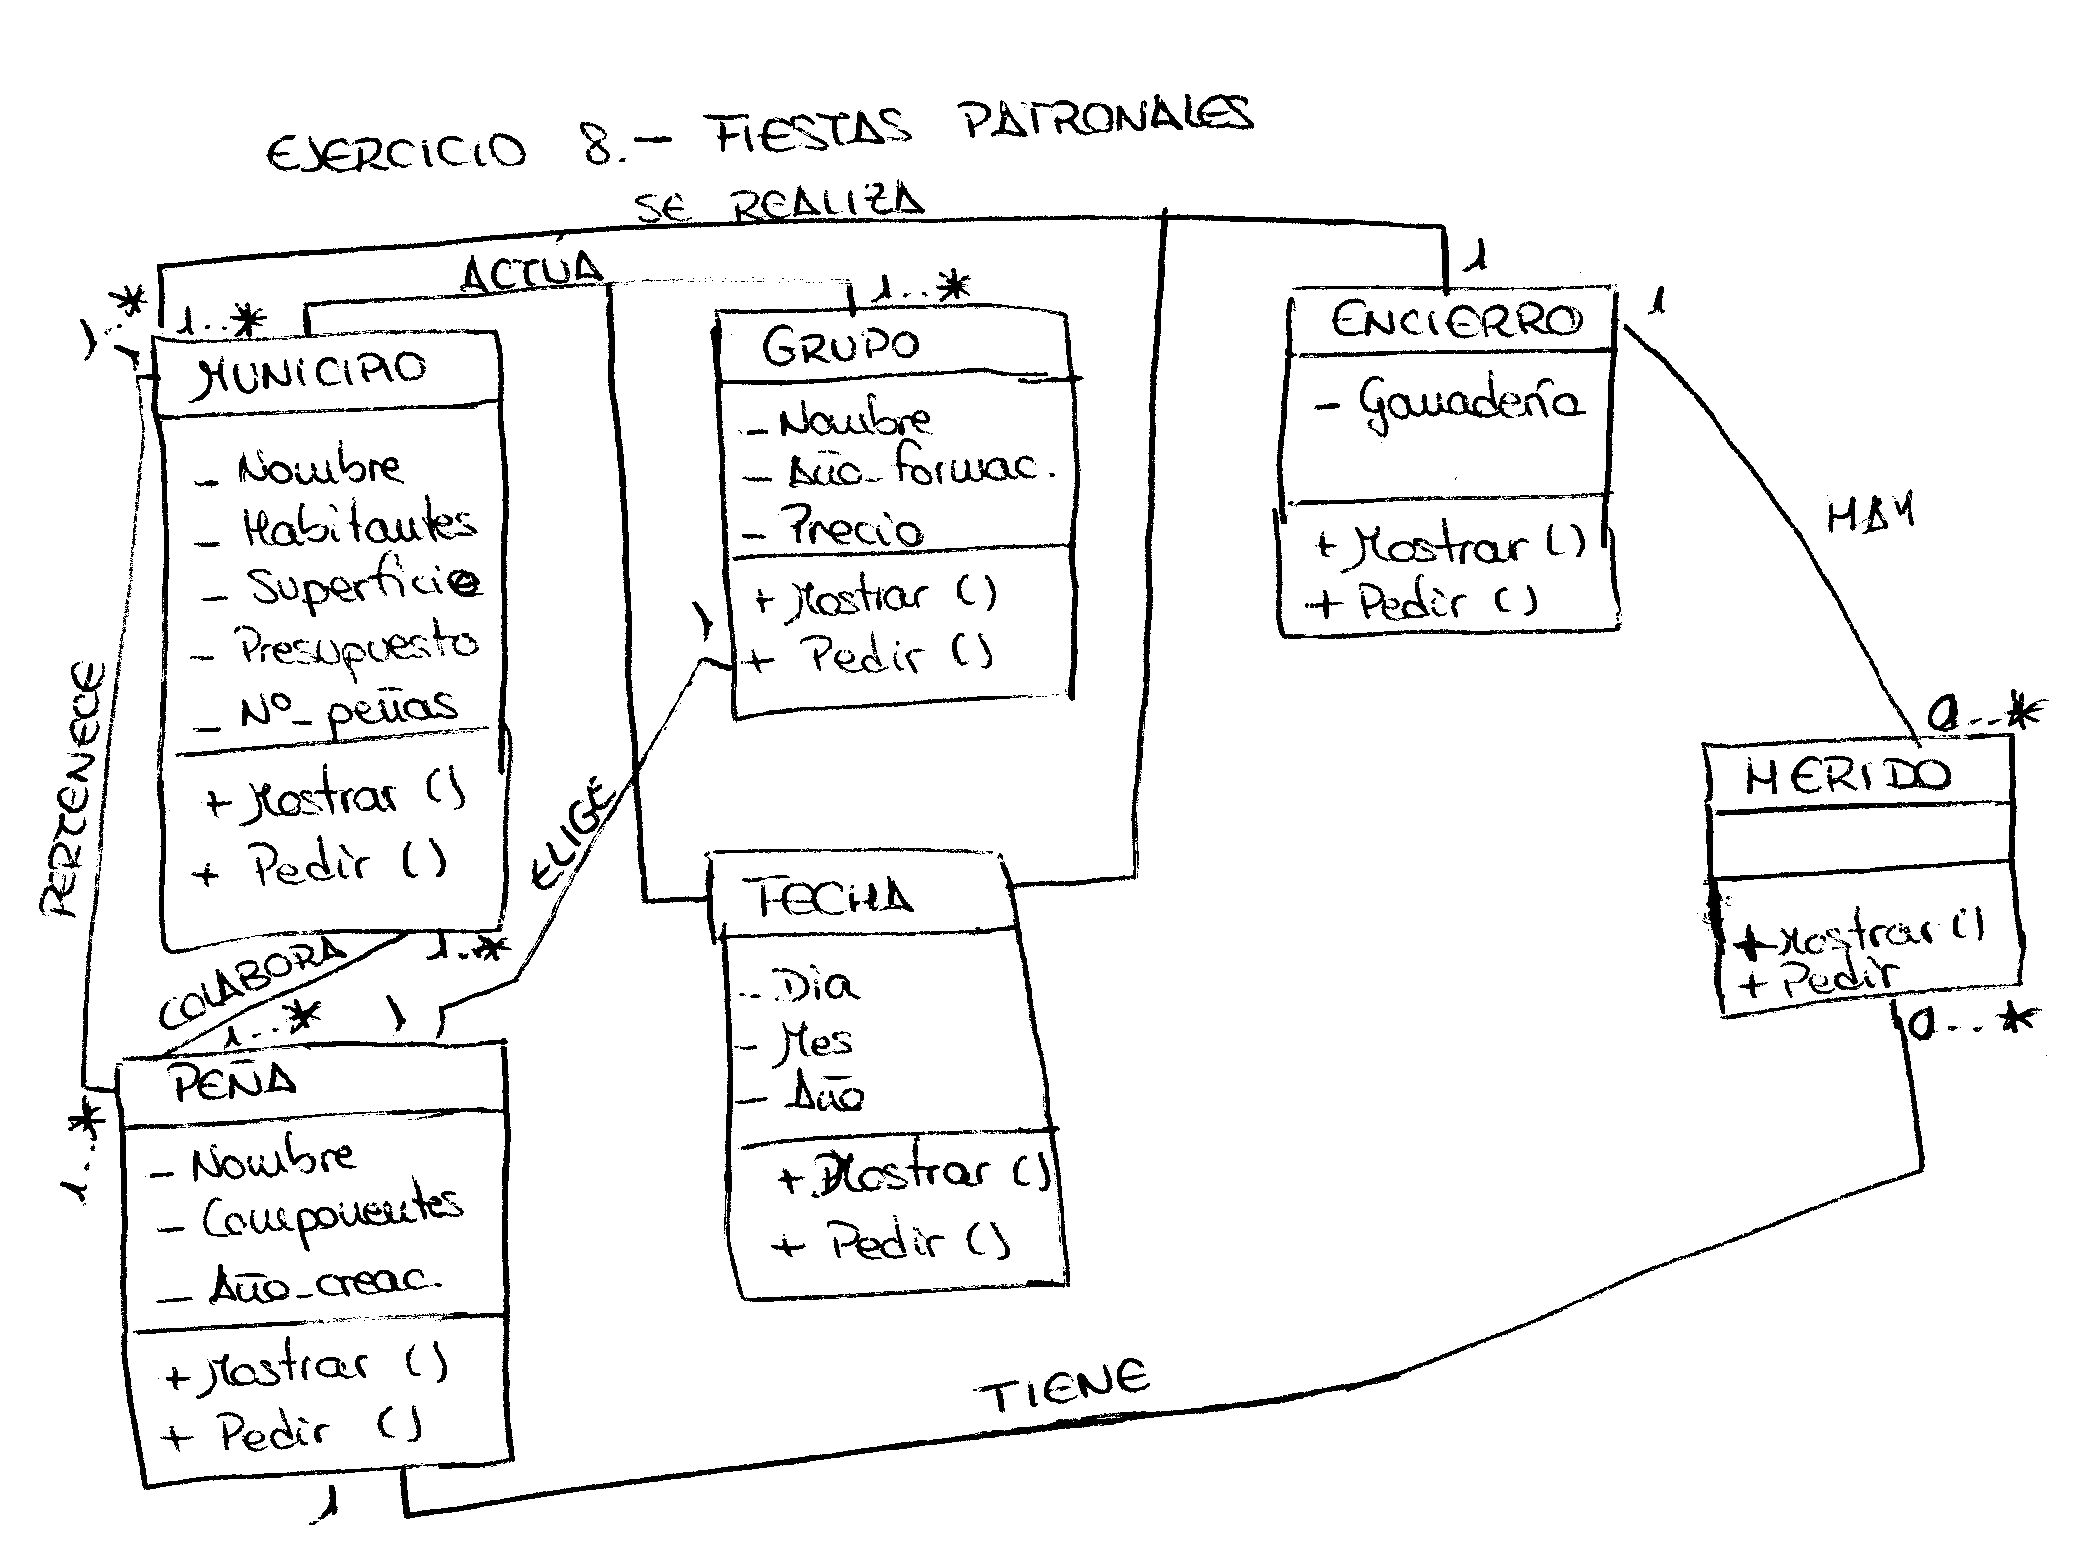 EJERCICIO 8.- FIESTAS PATRONALES
SE REALIZA
ACTÚA
1..*
1..*
1
MUNICIPIO
- Nombre
- Habitantes
- Superficie
- Presupuesto
- Nº_peñas
+ Mostrar ()
+ Pedir ()
1..*
GRUPO
- Nombre
- Año_formac.
- Precio
+ Mostrar ()
+ Pedir ()
1
1
ENCIERRO
- Ganadería
+ Mostrar ()
+ Pedir ()
1
HAY
0..*
HERIDO
+ Mostrar ()
+ Pedir
0..*
PERTENECE
ELIGE
1
COLABORA
1..*
1..*
1
1..*
PEÑA
- Nombre
- Componentes
- Año_creac.
+ Mostrar ()
+ Pedir ()
1
FECHA
- Dia
- Mes
- Año
+ Mostrar ()
+ Pedir ()
TIENE